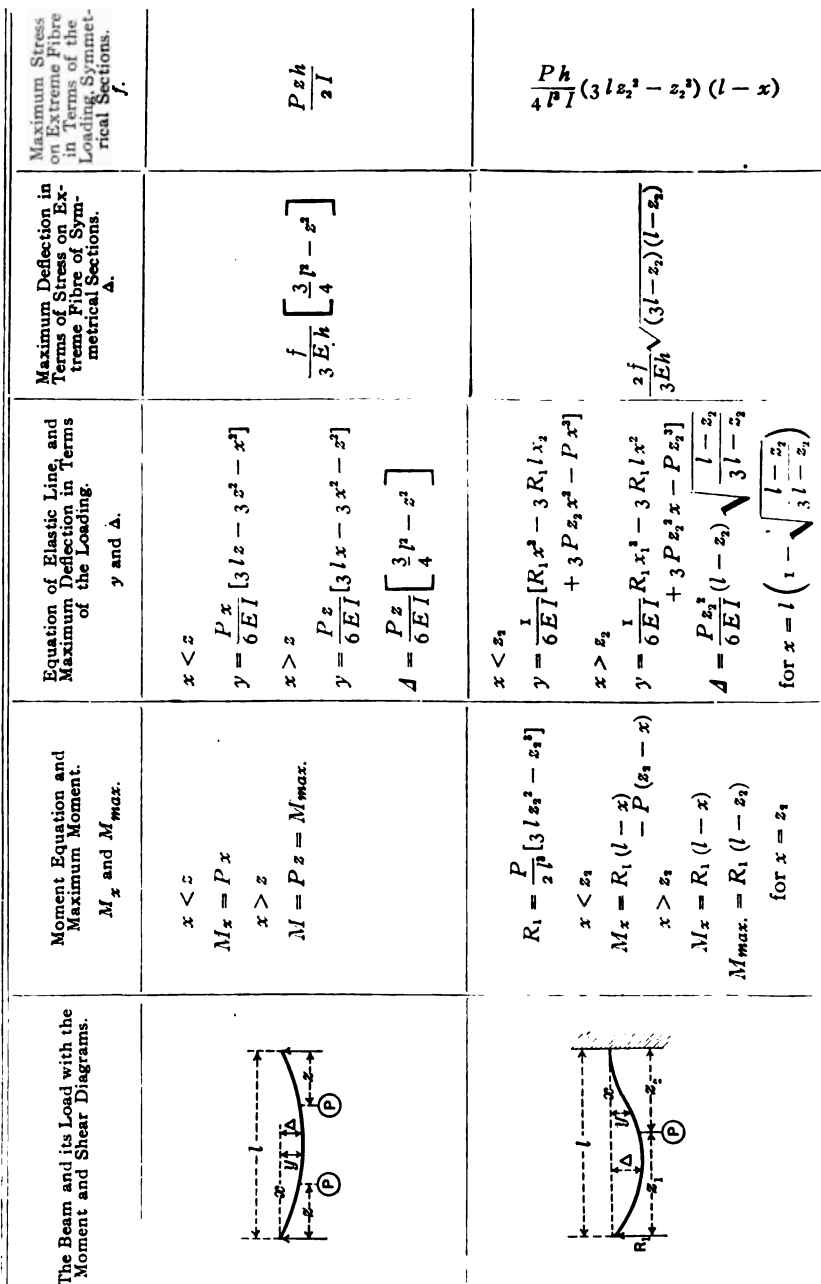 The Beam and its Load with the
Moment and Shear Diagrams.
Moment Equation and
Maximum Moment.
M_x and M_max.
Equation of Elastic Line, and
Maximum Deflection in Terms
of the Loading.
y and Δ.
Maximum Deflection in
Terms of Stress on Ex-
treme Fibre of Sym-
metrical Sections.
Δ.
Maximum Stress
on Extreme Fibre
in Terms of the
Loading, Symmet-
rical Sections.
f.
l
x
y
Δ
z
z
P
P
x < z
M_x = P x
x > z
M = P z = M_max.
x < z
y = P x / 6 E I [3 l z − 3 z² − x²]
x > z
y = P z / 6 E I [3 l x − 3 x² − z²]
Δ = P z / 6 E I [3/4 l² − z²]
f / 3 E h [3/4 l² − z²]
P z h / 2 I
l
x
y
Δ
z₁
z₂
R₁
P
R₁ = P / 2 l³ [3 l z₂² − z₂³]
x < z₂
M_x = R₁ (l − x)
− P (z₂ − x)
x > z₂
M_x = R₁ (l − x)
M_max. = R₁ (l − z₂)
for x = z₂
x < z₂
y = 1 / 6 E I [R₁ x³ − 3 R₁ l x₂
+ 3 P z₂ x² − P x³]
x > z₂
y = 1 / 6 E I R₁ x₁³ − 3 R₁ l x²
+ 3 P z₂² x − P z₂³]
Δ = P z₂² / 6 E I (l − z₂) √(l − z₂ / 3 l − z₂)
for x = l (1 − √(l − z₂ / 3 l − z₂))
2 f / 3 E h √(3 l − z₂) (l − z₂)
P h / 4 l³ I (3 l z₂² − z₂³) (l − x)